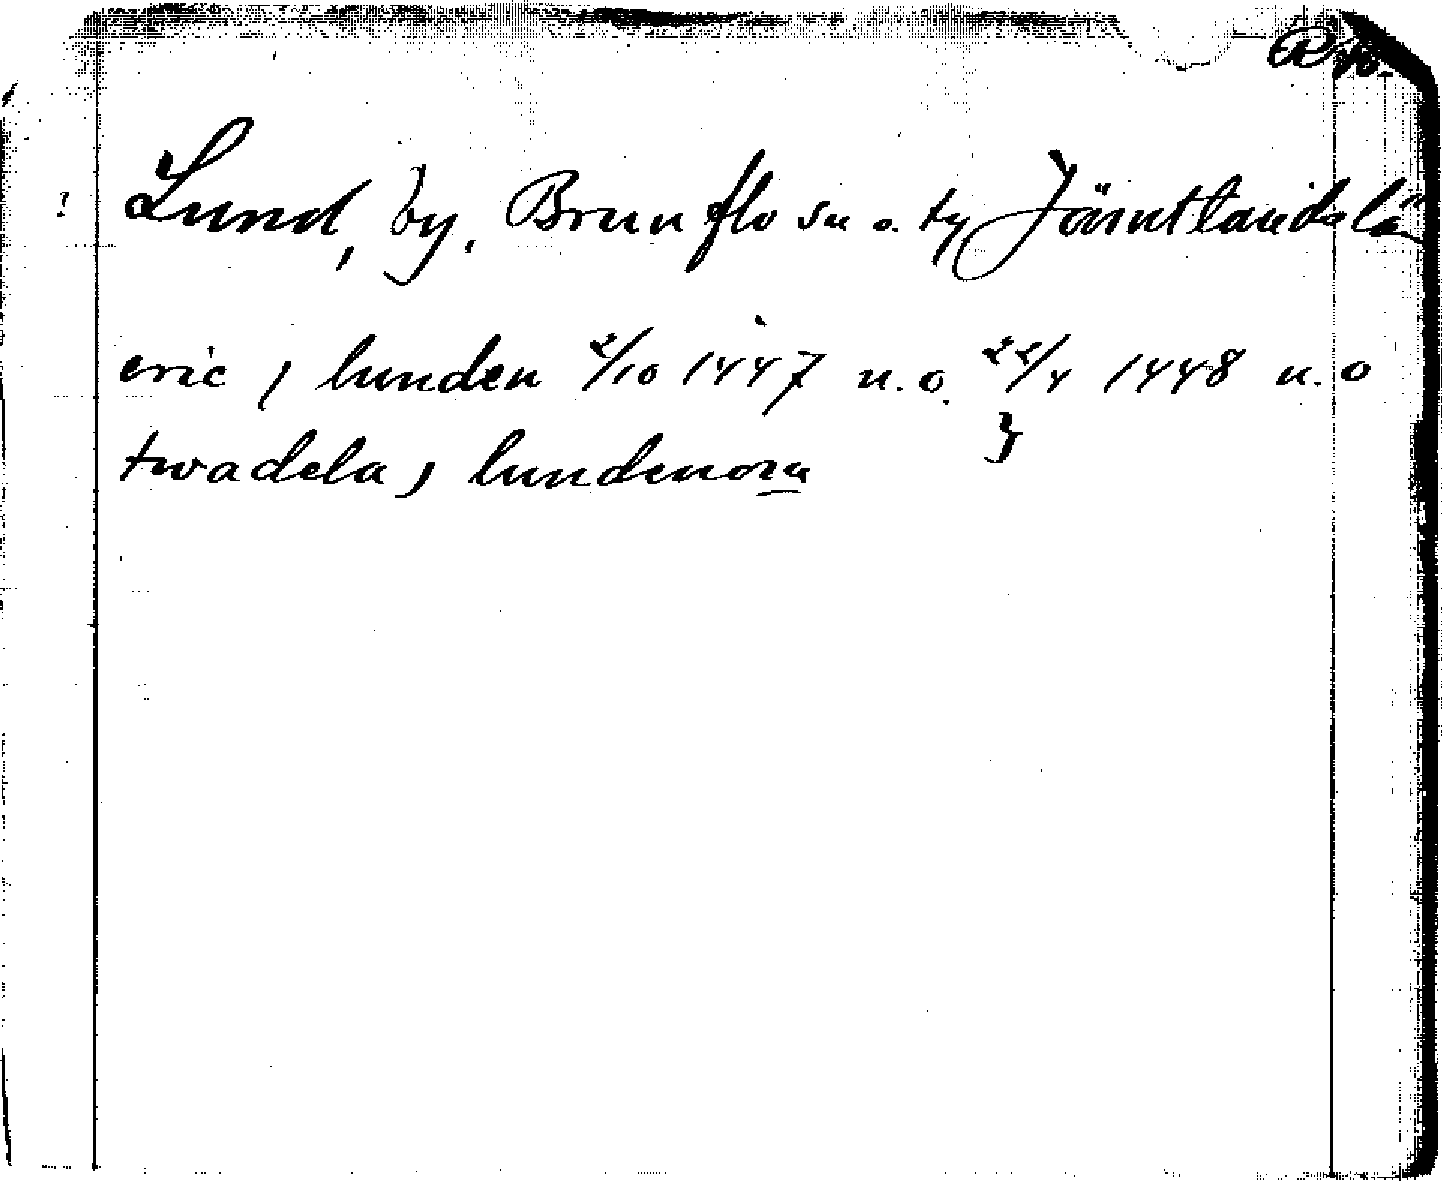 Lund, by, Brunflo sn o. ty Jämtlands län
eric j lunden 2/10 1447 n.o. 22/4 1448 n.o
twadela j lundenom